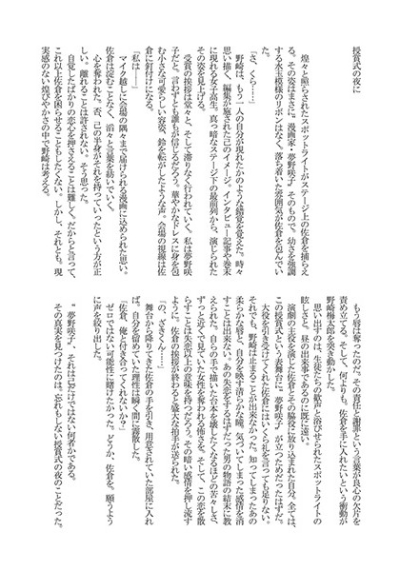 授賞式の夜に
煌々と照らされたスポットライトがステージ上の佐倉を捕らえ
る。その姿はまさに、漫画家・夢野咲子、そのもので。幼さを強調
する水玉模様のリボンはなく、落ち着いた雰囲気が佐倉を包んでい
た。
「さ、くら……」
野崎は、もう一人の自分が現れたかのような錯覚を覚えた。時々
思い描く、編集が施された己のイメージ。インタビュー記事や巻末
に現れる女子高生。真っ暗なステージ下の最前列から、演じられた
その姿を見上げる。
受賞の挨拶は堂々と、そして滞りなく行われていく。私は夢野咲
子だと、言わずとも誰もが信じるだろう。華やかなドレスに身を包
む小さな可愛らしい容姿、鈴を転がしたような声。会場の視線は佐
倉に釘付けになる。
「私は――」
マイク越しに会場の隅々まで届けられる漫画に込められた思い。
佐倉は淀むことなく、滔々と言葉を紡いでいく。
心を奪われた。否、己の半身がそれを持っていったという方が正
しい。離れることは許されない。そう思った。
自覚したばかりの恋心を押さえることは難しく、だからと言って、
これ以上佐倉を困らせることもしたくない。しかし、それとも。現
実感のない煌びやかさの中で野崎は考える。
もう唇は奪ったのだ。その責任と謝罪という言葉が良心の欠片を
責め立てる。そして、何よりも。佐倉を手に入れたいという衝動が
野崎梅太郎を突き動かした。
思い出すのは、生徒たちの歓声と浴びせられたスポットライトの
眩しさと。昼の出来事であるのに既に遠い。
演劇の主役を演じた佐倉とその脇役に放り込まれた自分。全ては、
この授賞式という舞台に、夢野咲子、が立つためだったはずだ。
大役を引き受けてくれた佐倉にはいくらお礼を言っても足りない。
それでも、野崎は止まることが出来なかった。知ってしまったあの
柔らかな唇と、自分を映す清らかな瞳。気づいてしまえば目を逸らす
ことは出来ない。あの失恋をするはずだった男の物語の結末に教
えられた。自らの手で描いた台本を壊したくなるほどの苦々しさ。
ずっと近くで見ていた女性を奪われる怖さを。そして、この恋を散
らすことは失恋以上の意味を持つだろう。その暗い感情を押し流す
ように、佐倉の挨拶が終わると盛大な拍手が送られた。
「の、ざきくん……」
舞台から降りてきた佐倉の手を引き、用意されていた部屋に入れ
ば。自分を留めていた理性は瞬く間に霧散した。
「佐倉、俺と付き合ってくれないか？」
ゼロではない可能性に賭けたかった。どうか、佐倉を。願うよう
に声を絞り出した。
〝夢野咲子〟それは己だけではない何者かである。
その真実を見つけたのは、忘れもしない授賞式の夜のことだった。